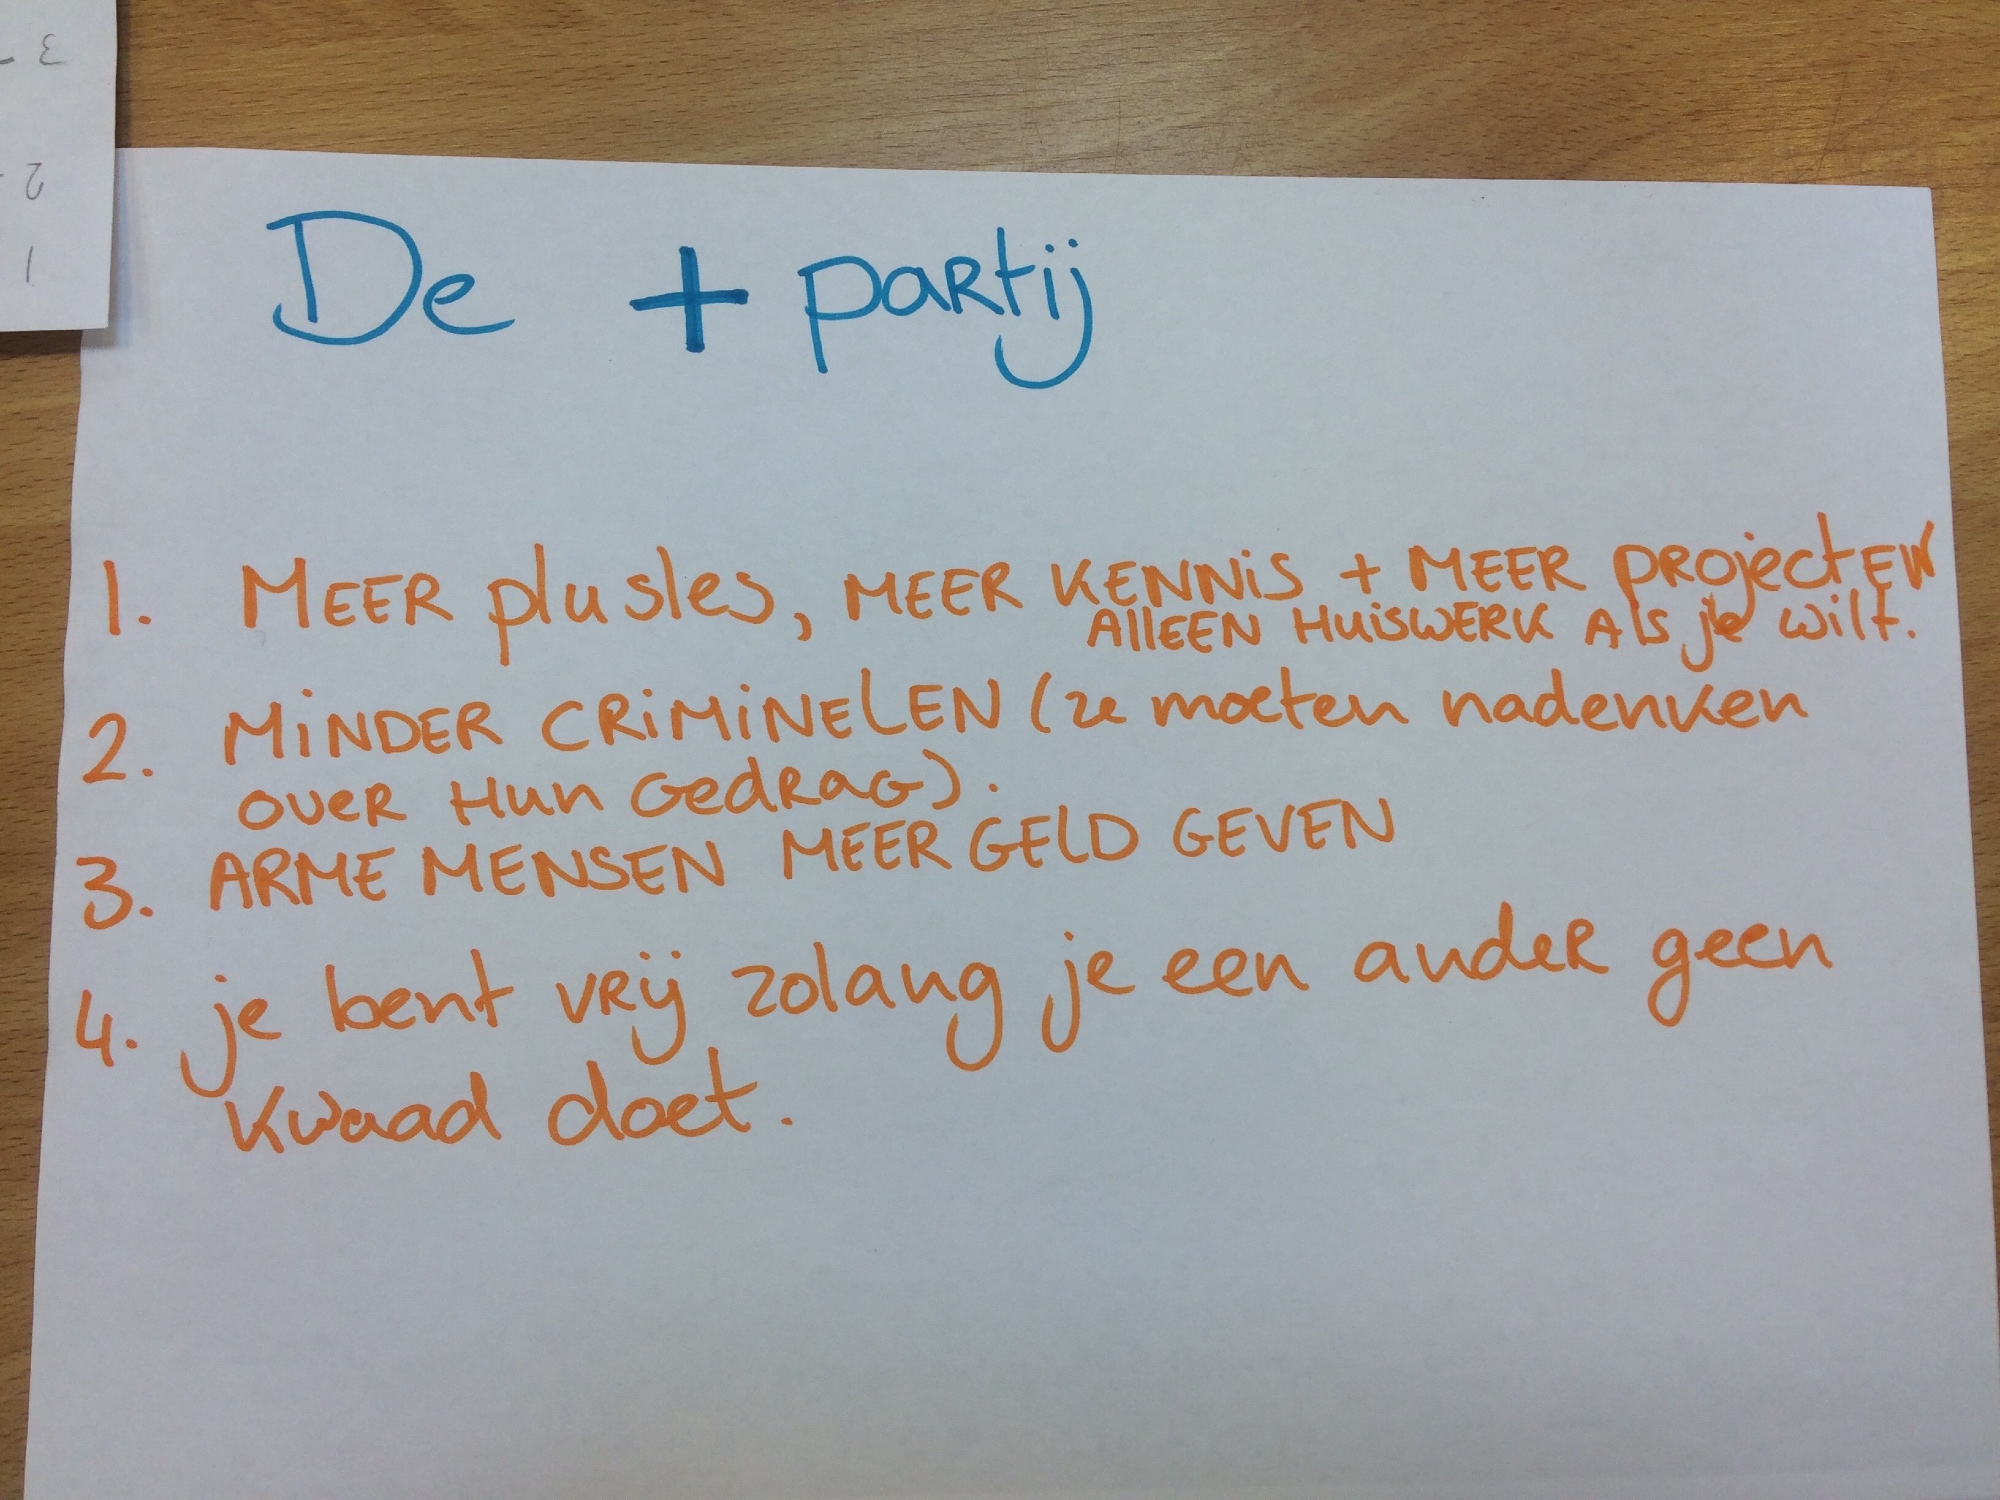 De + partij
1. MEER plusles, MEER KENNiS + MEER PROjectEN
AllEEN HuiswERK Als je wilt.
2. MiNDER CRiMiNElEN (ze moeten nadenken
over Hun Gedrag).
3. ARME MENSEN MEER GElD GEVEN
4. je bent vrij zolang je een ander geen
kwaad doet.
3 -
2 -
1